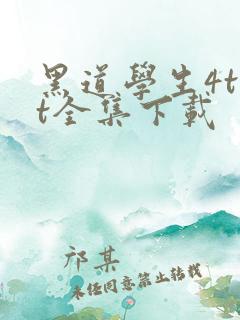 黑道學生4t
t全集下載
祁某
未经同意禁止转载